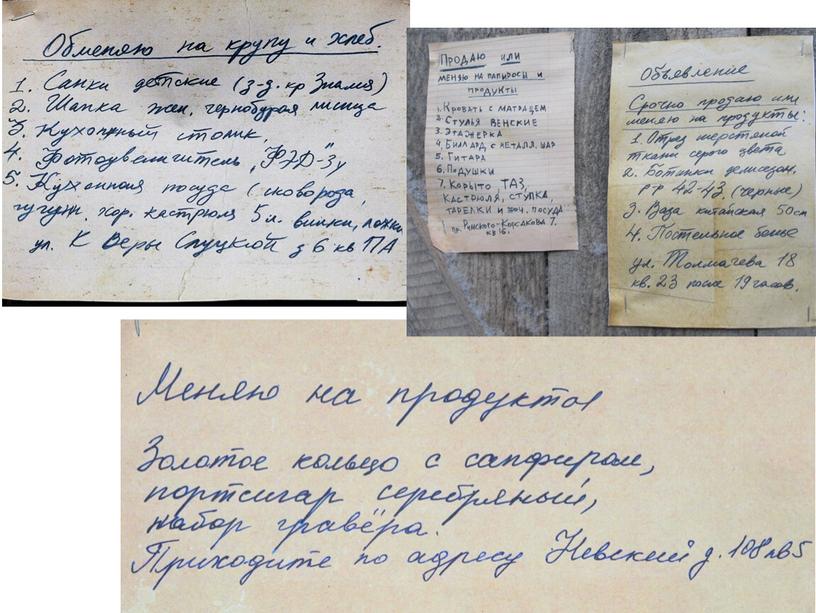 Обменяю на крупу и хлеб.
1. Санки детские (з-д. кр Знамя)
2. Шапка жен. чернобурая лисица
3. Кухонный столик,
4. Фотоувеличитель „ФЭД"-Зу
5. Кухонная посуда (сковорода,
чугун, хор. кастрюля 5л. вилки, ложки
ул. К Веры Слуцкой д 6 кв ПА
Продаю или
меняю на папиросы и
продукты
1. Кровать с матрацем
2. Стулья венские
3. Этажерка
4. Биллард с металл. шар
5. Гитара
6. Подушки
7. Корыто, ТАЗ,
кастрюля, ступка,
тарелки и посуда
пр. Римского-Корсакова 7.
кв 16.
Объявление
Срочно продаю или
меняю на продукты:
1. Отрез шерстяной
ткани серого цвета
2. Ботинки демисезон.
р-р 42-43, (черные)
3. Ваза китайская 50см
4. Постельное белье
ул. Толмачева 18
кв. 23 после 19 часов.
Меняю на продукты
Золотое кольцо с сапфиром,
портсигар серебряный,
набор гравёра.
Приходите по адресу Невский д. 108 кв 5